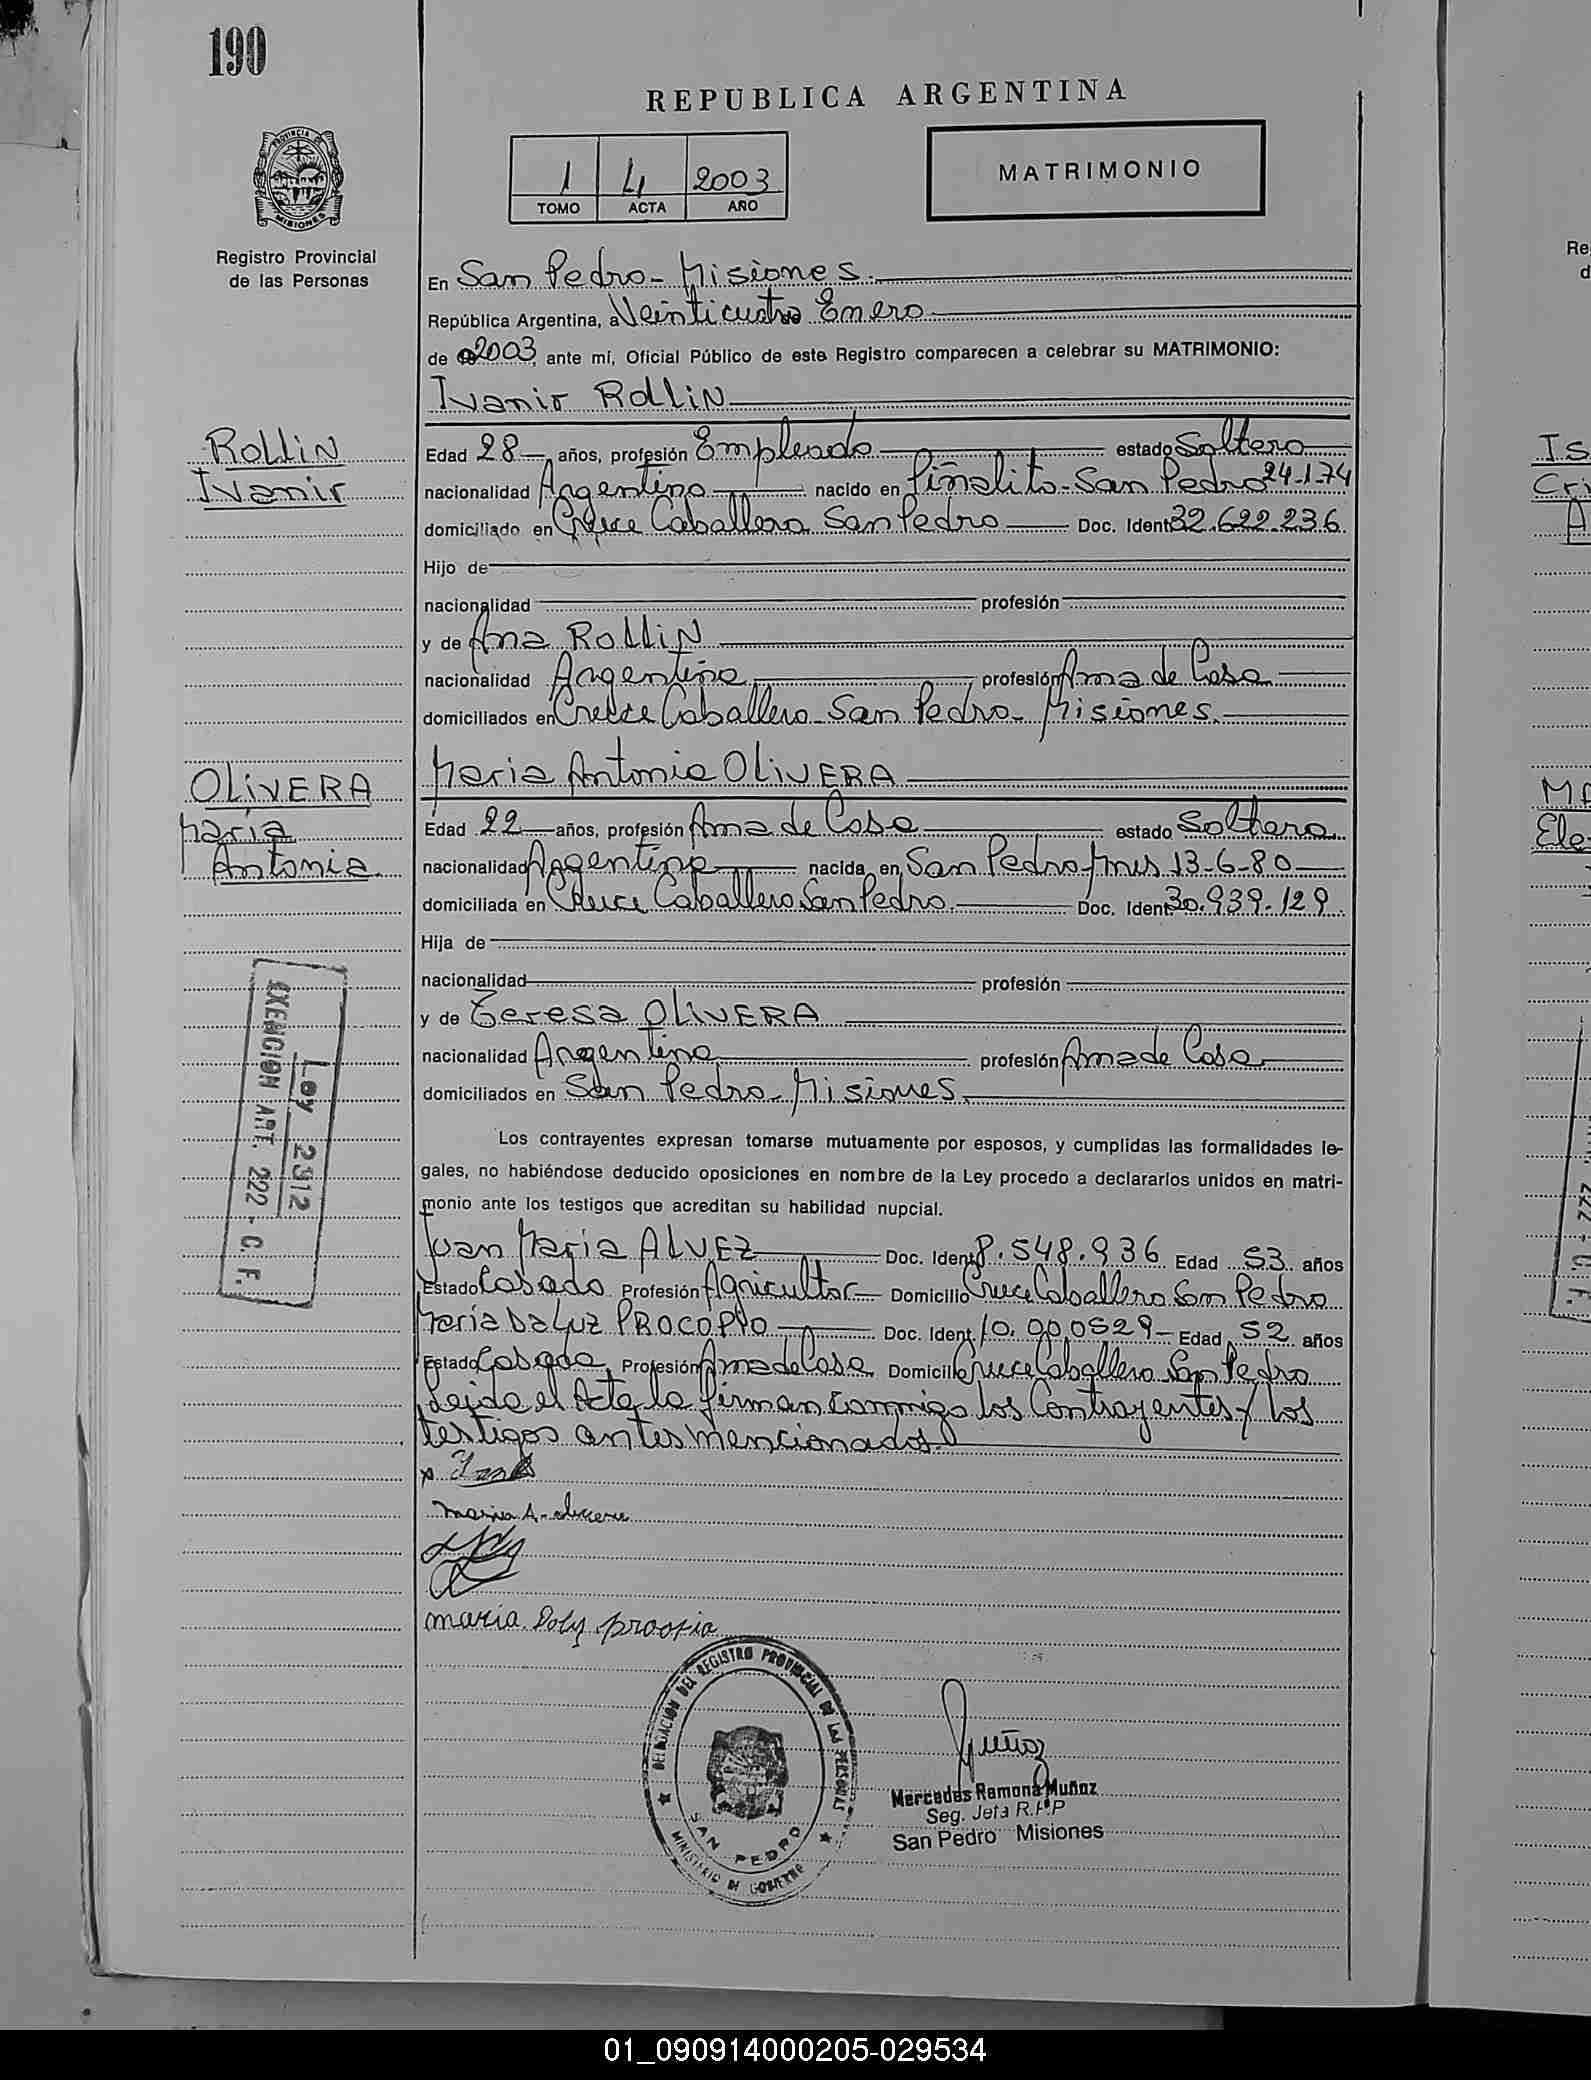 190
REPUBLICA ARGENTINA
MATRIMONIO
1 4 2003
TOMO ACTA AÑO
PROVINCIA DE MISIONES
Registro Provincial
de las Personas
En San Pedro - Misiones.
República Argentina, a Veinticuatro Enero
de 2003, ante mí, Oficial Público de este Registro comparecen a celebrar su MATRIMONIO:
Ivanir ROLLIN
ROLLIN
Ivanir
Edad 28 años, profesión Empleado estado Soltero
nacionalidad Argentino nacido en Piñalito - San Pedro 24-1-74
domiciliado en Cruce Caballero San Pedro Doc. Ident. 32.622.236
Hijo de
nacionalidad profesión
y de Ana ROLLIN
nacionalidad Argentina profesión Ama de Casa
domiciliados en Cruce Caballero - San Pedro - Misiones.
OLIVERA
Maria
Antonia
Maria Antonia OLIVERA
Edad 22 años, profesión Ama de Casa estado Soltera
nacionalidad Argentina nacida en San Pedro Mnes 13-6-80
domiciliada en Cruce Caballero San Pedro Doc. Ident. 30.939.129
Hija de
nacionalidad profesión
y de Teresa OLIVERA
nacionalidad Argentina profesión Ama de Casa
domiciliados en San Pedro - Misiones.
Ley 2912
EXENCION ART. 222 - C. F.
Los contrayentes expresan tomarse mutuamente por esposos, y cumplidas las formalidades le-
gales, no habiéndose deducido oposiciones en nombre de la Ley procedo a declararlos unidos en matri-
monio ante los testigos que acreditan su habilidad nupcial.
Juan Maria ALVEZ Doc. Ident. 8.548.936 Edad 53 años
Estado Casado Profesión Agricultor Domicilio Cruce Caballero San Pedro
Maria Da Luz PROCOPIO Doc. Ident. 10.900529 - Edad 52 años
Estado Casada Profesión Ama de Casa Domicilio Cruce Caballero San Pedro
Leida el Acta la firman conmigo los Contrayentes y los
testigos antes mencionados.
Maria A.
maria
DELEGACION DEL REGISTRO PROVINCIAL DE LAS PERSONAS
SAN PEDRO
MINISTERIO DE GOBIERNO
Muñoz
Mercedes Ramona Muñoz
Seg. Jefa R.P.P
San Pedro Misiones
Re
d
Is
Cri
A
MA
Ele
222 - C. F.
01_090914000205-029534